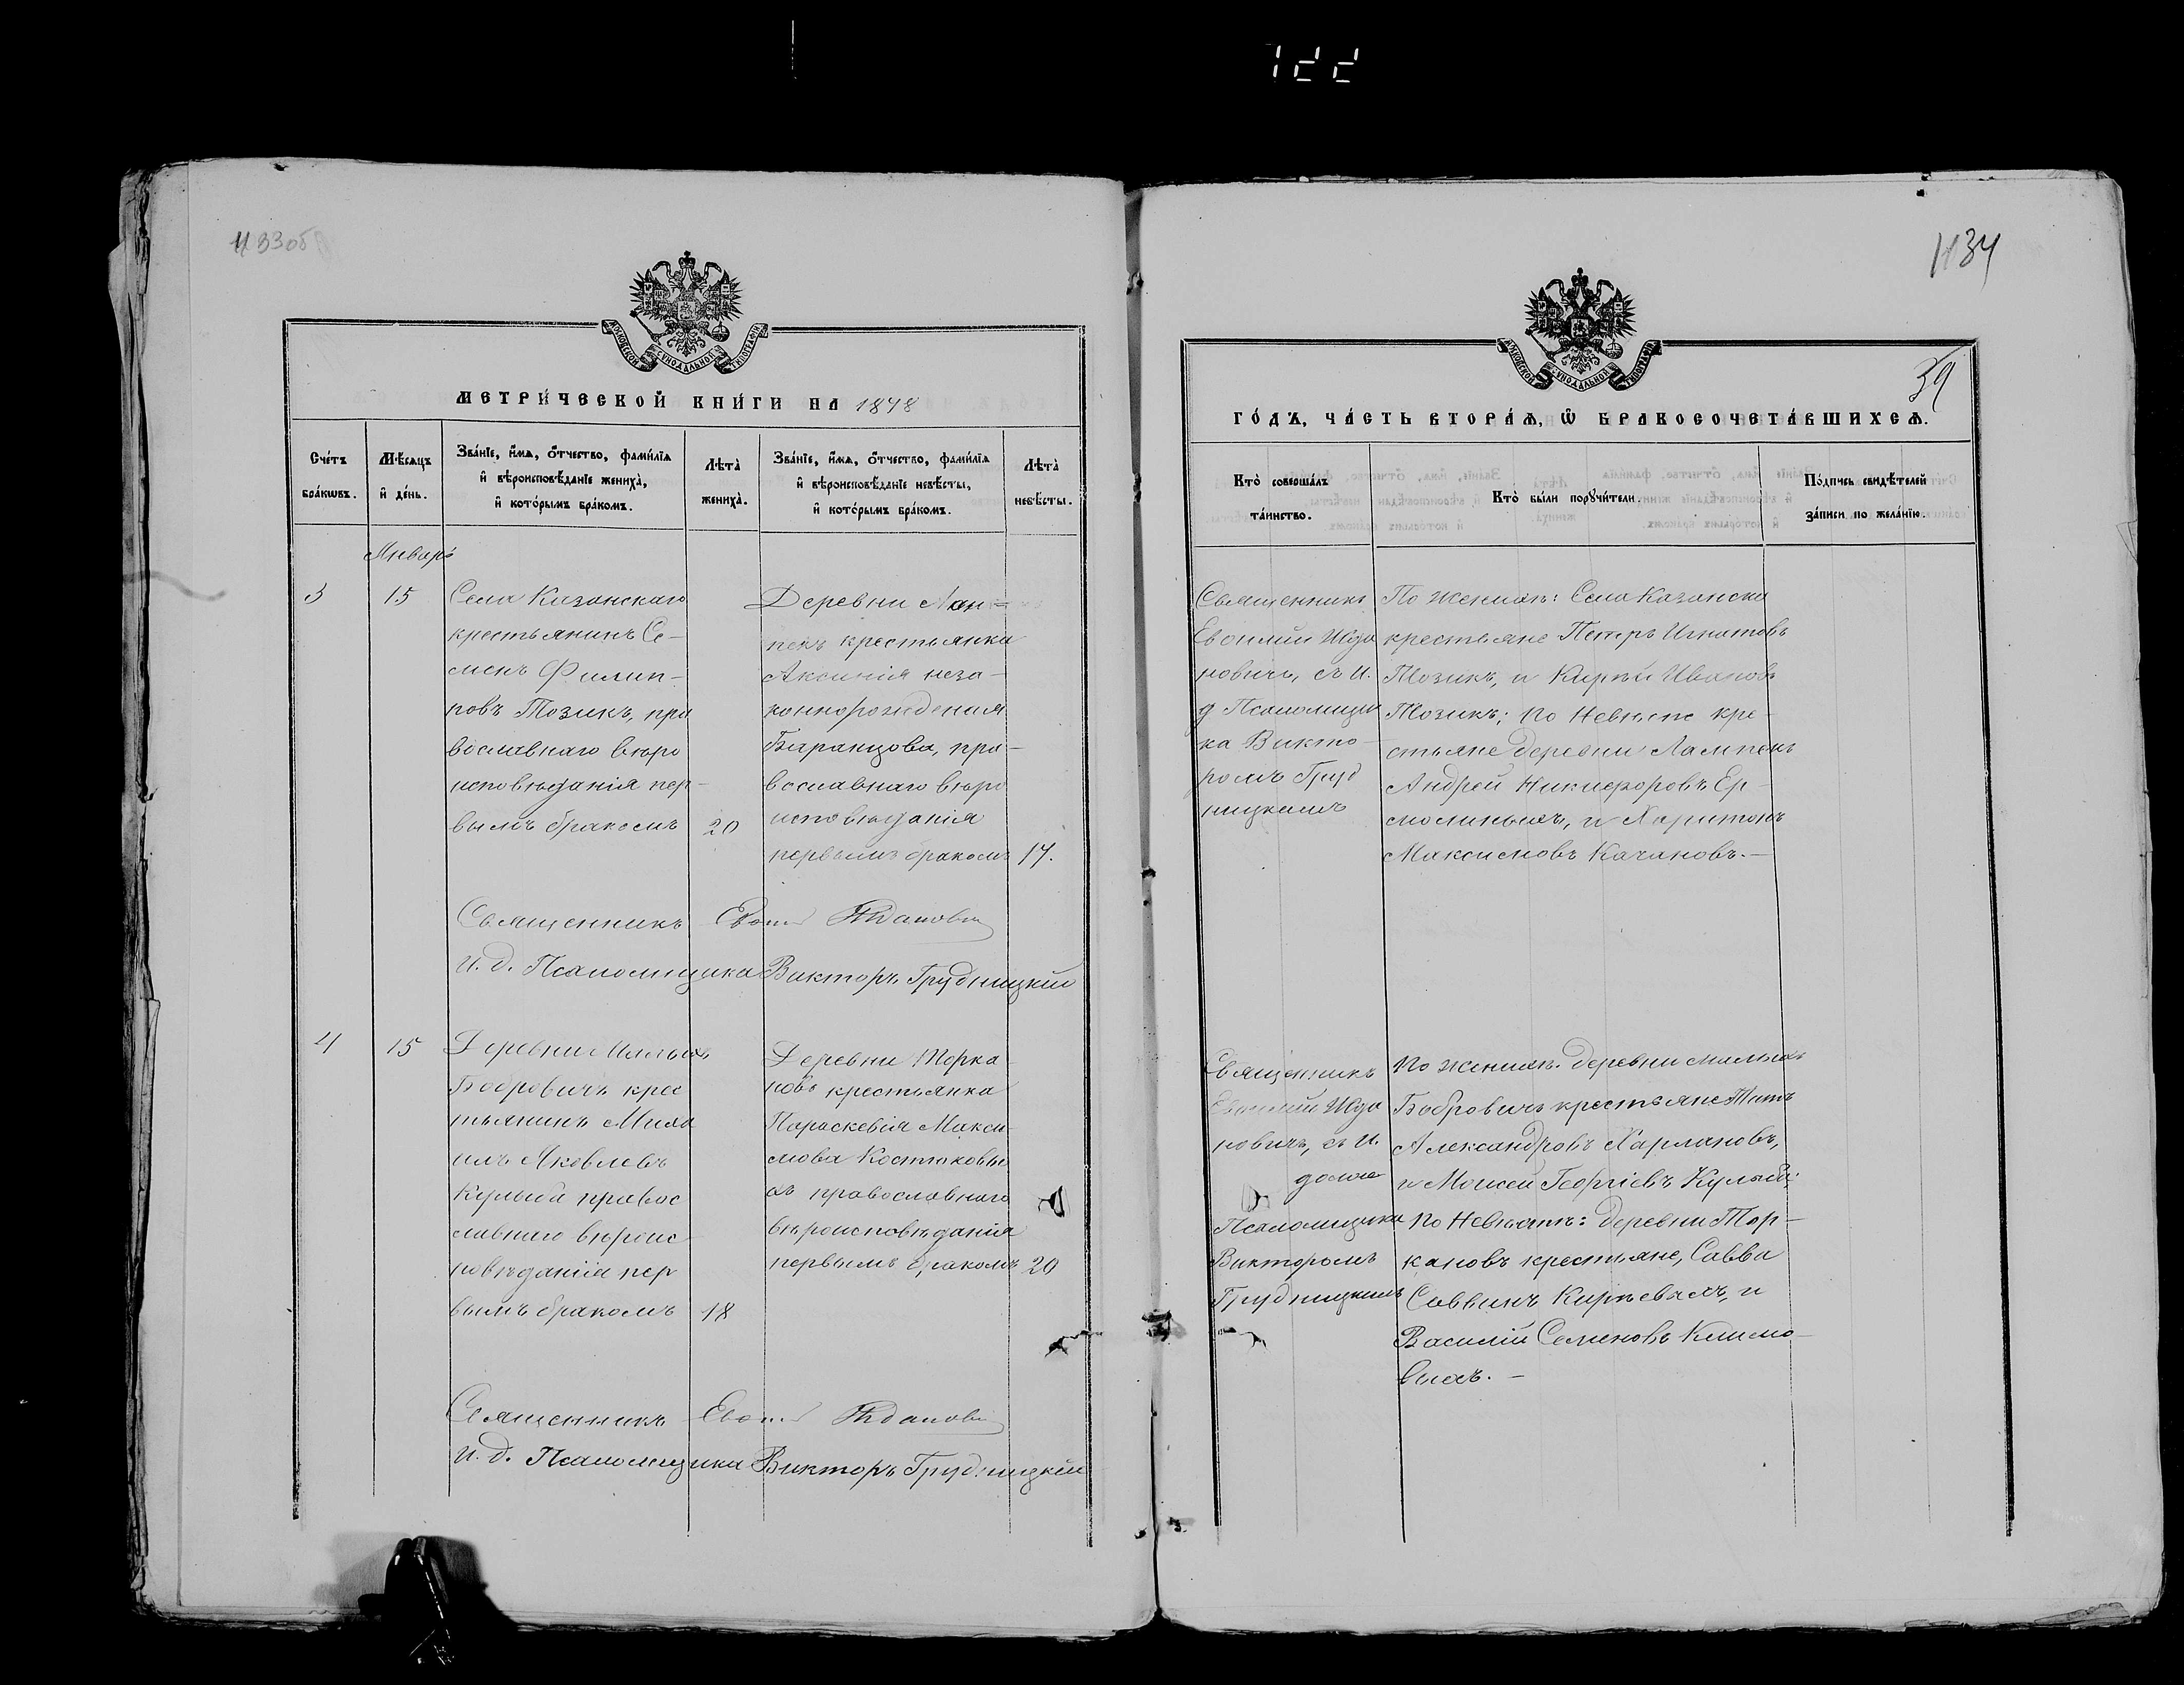 122
33 об
34
39
МОСКОВСКОЙ СѴНОДАЛЬНОЙ ТИПОГРАФІИ
МОСКОВСКОЙ СѴНОДАЛЬНОЙ ТИПОГРАФІИ
МЕТРИ́ЧЕСКОЙ КНИ́ГИ НА 1878
ГО́ДЪ, ЧА́СТЬ ВТОРА́Ѧ, Ѿ БРАКОСОЧЕТА́ВШИХСѦ.
Сче́тъ бра́кѡвъ.
Мѣ́сѧцъ и҆ де́нь.
Зва́нїе, и҆́мѧ, ѻ҆́тчество, фами́лїѧ
и҆ вѣроисповѣ́данїе жениха̀,
и҆ кото́рымъ бра́комъ.
Лѣта̀ жениха̀.
Зва́нїе, и҆́мѧ, ѻ҆́тчество, фами́лїѧ
и҆ вѣроисповѣ́данїе невѣ́сты,
и҆ кото́рымъ бра́комъ.
Лѣта̀ невѣ́сты.
Кто̀ соверша́лъ
та́инство.
Кто̀ бы́ли порꙋчи́тели.
По́дпись свидѣ́телей
за́писи по жела́нїю.
Январь
3
15
Села Казанскаго
крестьянинъ Се-
менъ Филип-
повъ Тозикъ, пра
вославнаго вѣро
исповѣданія пер-
вымъ бракомъ
20
Деревни Лам-
пекъ крестьянка
Аксинія неза-
коннорожденая
Баранцова, пра-
вославнаго вѣро
исповѣданія
первымъ бракомъ
17.
Священникъ
Евѳимій Жда
новичь, съ И.
д Псаломщи
ка Викто-
ромъ Груд
ницкимъ
По женихѣ: Села Казанска
крестьяне Петръ Игнатовъ
Тозикъ, и Кирѣй Ивановъ
Тозикъ; по Невѣсте кре-
стьяне деревни Лампекъ
Андрей Никифоровъ Ер-
молиныхъ, и Харитонъ
Максимовъ Качановъ.—
Священникъ Евѳим Жданович
И. д. Псаломщика Викторъ Грудницкій
4
15
Деревни Малыхъ
Бобровичъ крес
тьянинъ Миха
илъ Яковлевъ
Кулыба правос
лавнаго вѣроис
повѣданія пер
вымъ бракомъ
18
Деревни Торка
новъ крестьянка
Параскевія Макси-
мова Костюковы
хъ православнаго
вѣроисповѣданія
первымъ бракомъ
20
Священникъ
Евѳимій Жда
новичъ, съ И.
долж
Псаломщика
Викторомъ
Грудницкимъ
По женихѣ: деревни малыхъ
Бобровичъ крестьяне Титъ
Александровъ Харлановъ,
и Моисей Георгіевъ Кулыба;
по Невѣстѣ: деревни Тор-
кановъ крестьяне, Савва
Саввинъ Кирѣевыхъ, и
Василій Семеновъ Климо-
выхъ.—
Священникъ Евѳим Жданович
И. д. Псаломщика Викторъ Грудницкій